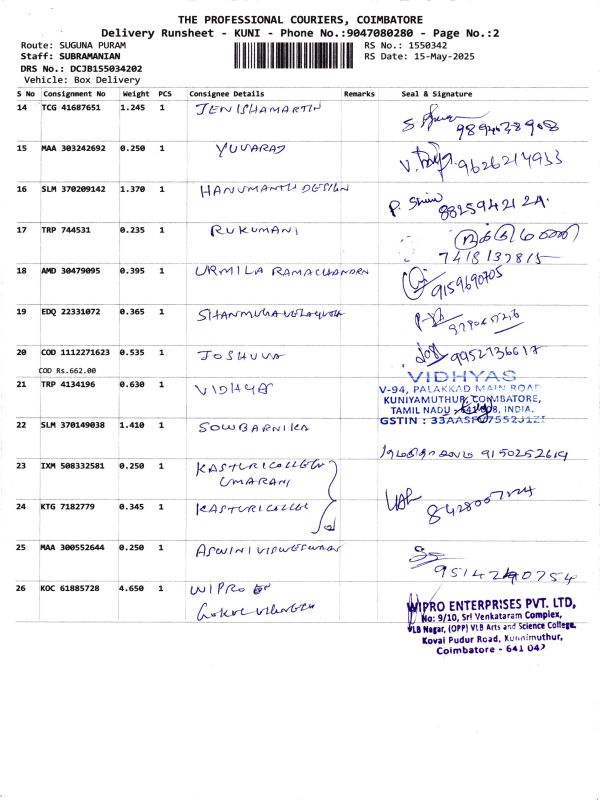 THE PROFESSIONAL COURIERS, COIMBATORE
Delivery Runsheet - KUNI - Phone No.:9047080280 - Page No.:2
Route: SUGUNA PURAM
RS No.: 1550342
Staff: SUBRAMANIAN
RS Date: 15-May-2025
DRS No.: DCJB155034202
Vehicle: Box Delivery
S No Consignment No Weight PCS Consignee Details Remarks Seal & Signature
14 TCG 41687651 1.245 1 JENISHAMARTIN
9894038908
15 MAA 303242692 0.250 1 YUVARAJ
9626214933
16 SLM 370209142 1.370 1 HANUMANTH DESIGN
17 TRP 744531 0.235 1 RUKUMANI
18 AMD 30479095 0.395 1 URMILA RAMACHANDRN
9159690705
19 EDQ 22331072 0.365 1 SHANMUGAVELAYUTH
20 COD 1112271623 0.535 1 JOSHUVA
9952736617
COD Rs.662.00
21 TRP 4134196 0.630 1 VIDHYAS
VIDHYAS
V-94, PALAKKAD MAIN ROAD
KUNIYAMUTHUR, COIMBATORE,
TAMIL NADU - 641008, INDIA.
22 SLM 370149038 1.410 1 SOWBARNIKA
9150252619
23 IXM 508332581 0.250 1 KASTURI COLLEGE
UMARANI
24 KTG 7182779 0.345 1 KASTURI COLLEGE
25 MAA 300552644 0.250 1 ASWINI VISWESWARAN
26 KOC 61885728 4.650 1 WIPRO
WIPRO ENTERPRISES PVT. LTD,
No: 9/10, Sri Venkataram Complex,
VLB Nagar, (OPP) VLB Arts and Science College,
Kovai Pudur Road, Kunnimuthur,
Coimbatore - 641 042